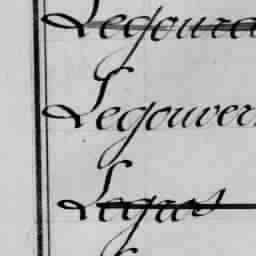 Legoura
Legouver
Legas